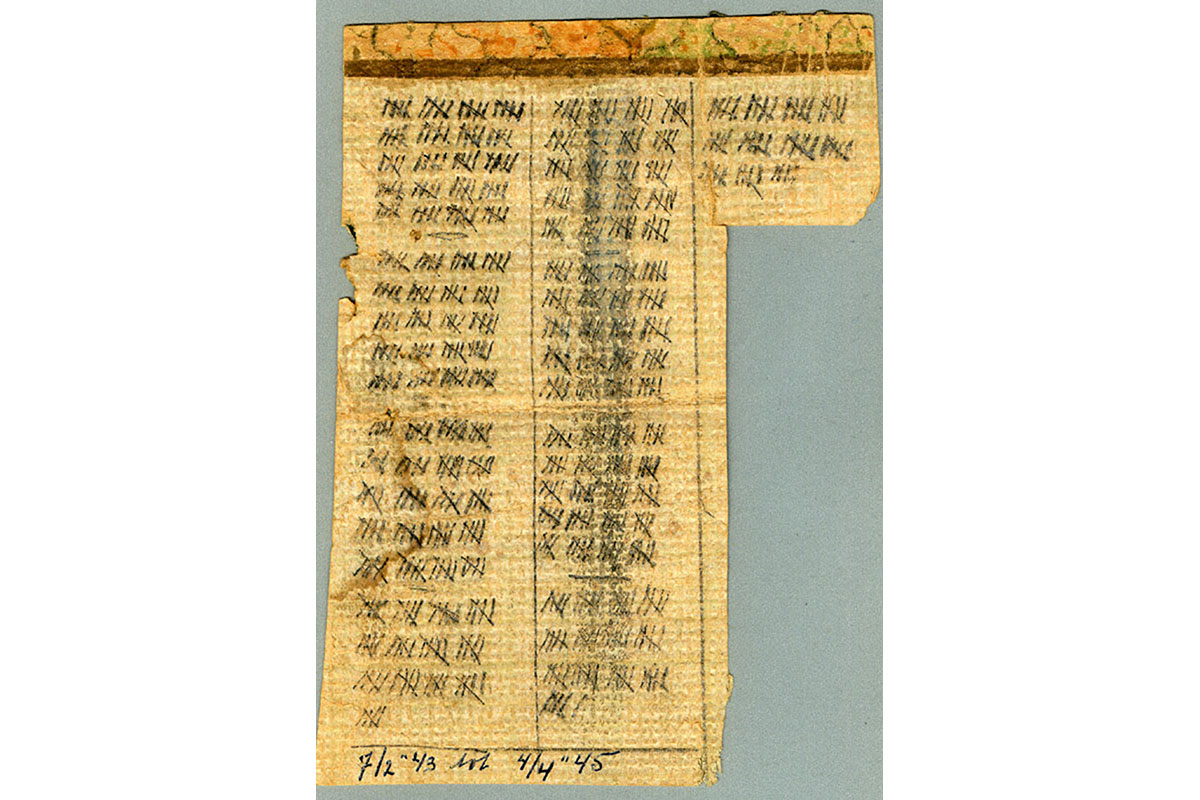 7/2"43 tot 4/4"45